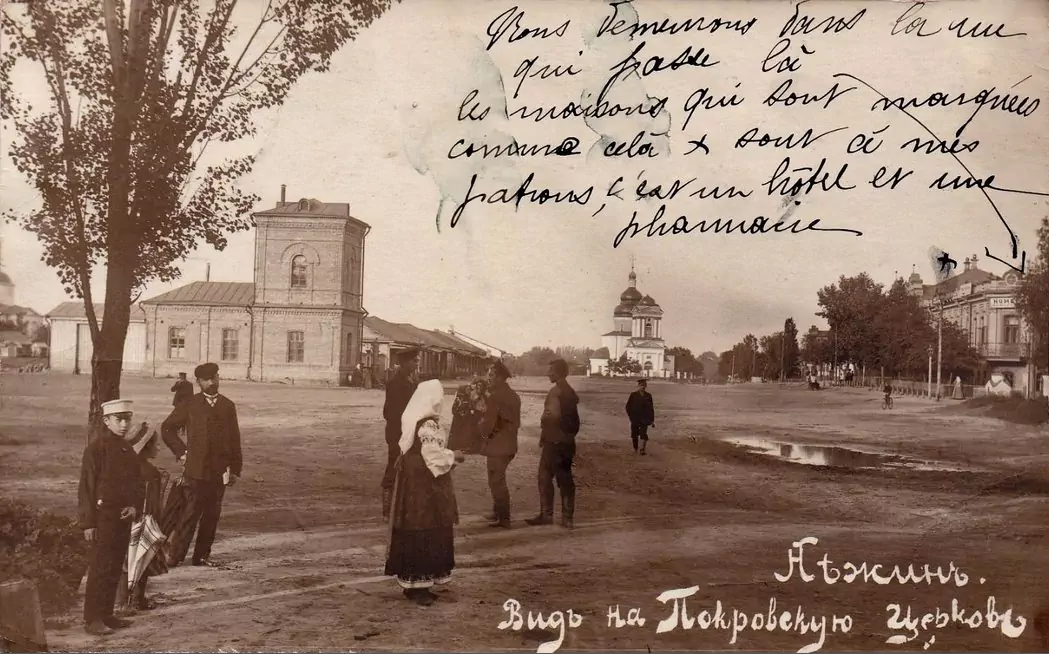 Nous demeurons dans la rue
qui passe là
les maisons qui sont marquées
comme celà x sont à mes
patrons, c'est un hôtel et une
pharmacie
x
НОМЕ
Нѣжинъ.
Видъ на Покровскую Церковь